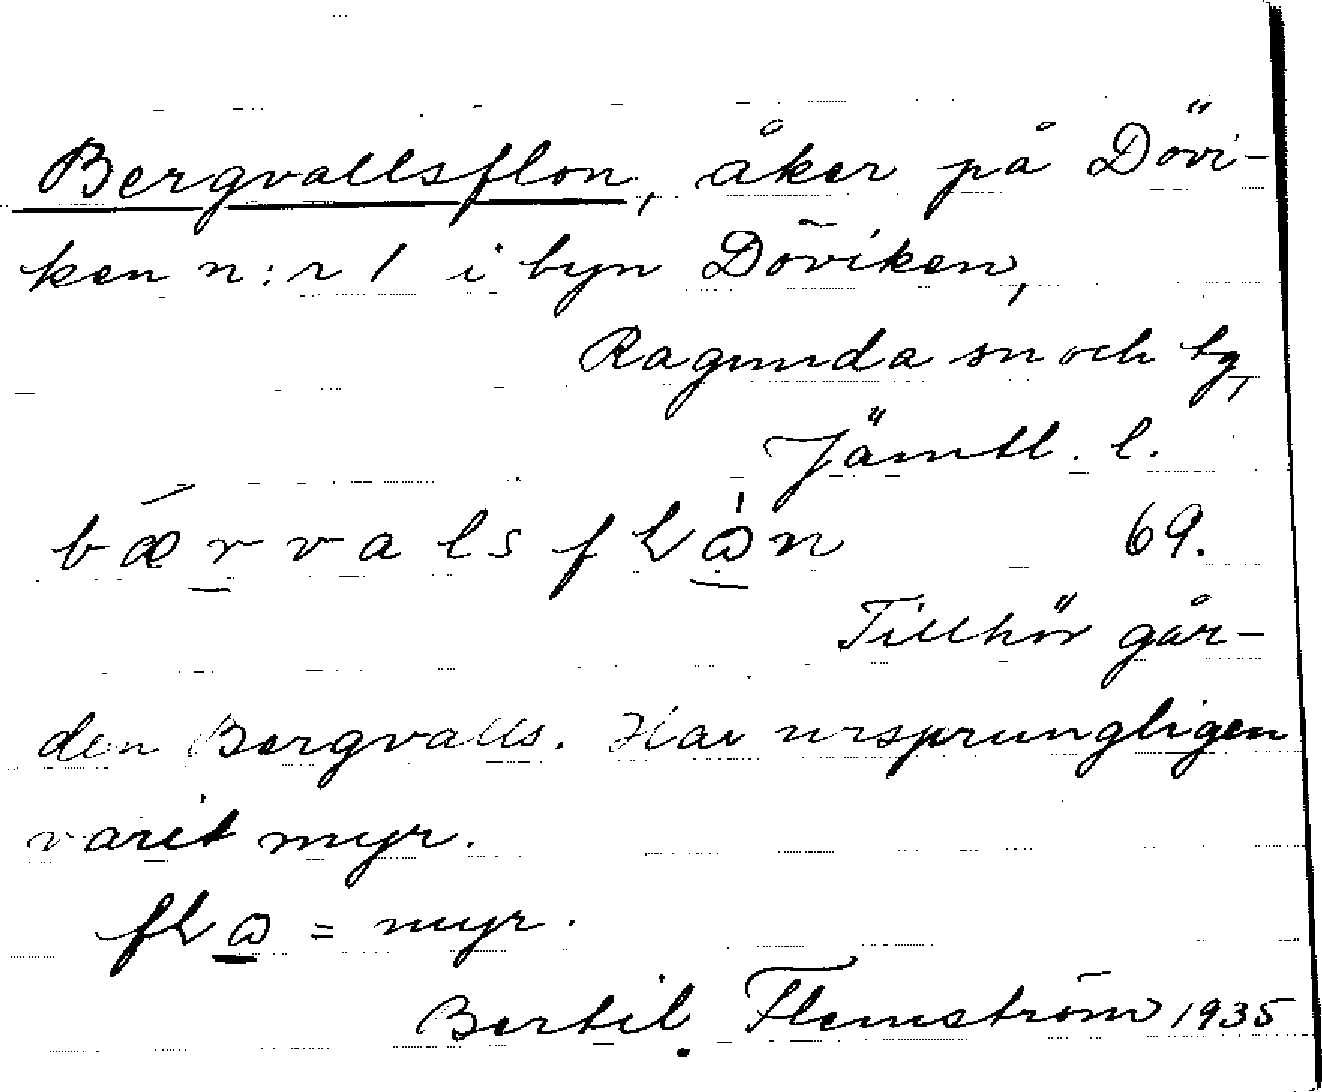 Bergvallsflon, åker på Dövi-
ken n:r 1 i byn Döviken,
Ragunda sn och tg,
Jämtl. l.
bærvalsfɫɷn 69.
Tillhör går-
den Bergvalls. Har ursprungligen
varit myr.
fɫɷ = myr.
Bertil Flemström 1935